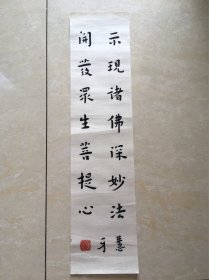 示現諸佛深妙法
開發眾生菩提心